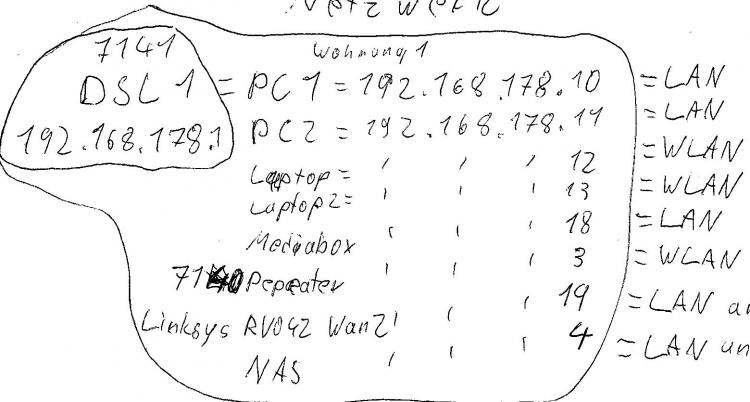 Netzwerk
7141
Wohnung 1
DSL 1 = PC 1 = 192.168.178.10 = LAN
192.168.178.1
PC2 = 192.168.178.11 = LAN
Laptop = ' ' ' 12 = WLAN
Laptop 2 = ' ' ' 13 = WLAN
Mediabox ' ' ' 18 = LAN
7140 Repeater ' ' ' 3 = WLAN
Linksys RV042 Wan2 ' ' ' 19 = LAN
NAS ' ' ' 4 = LAN